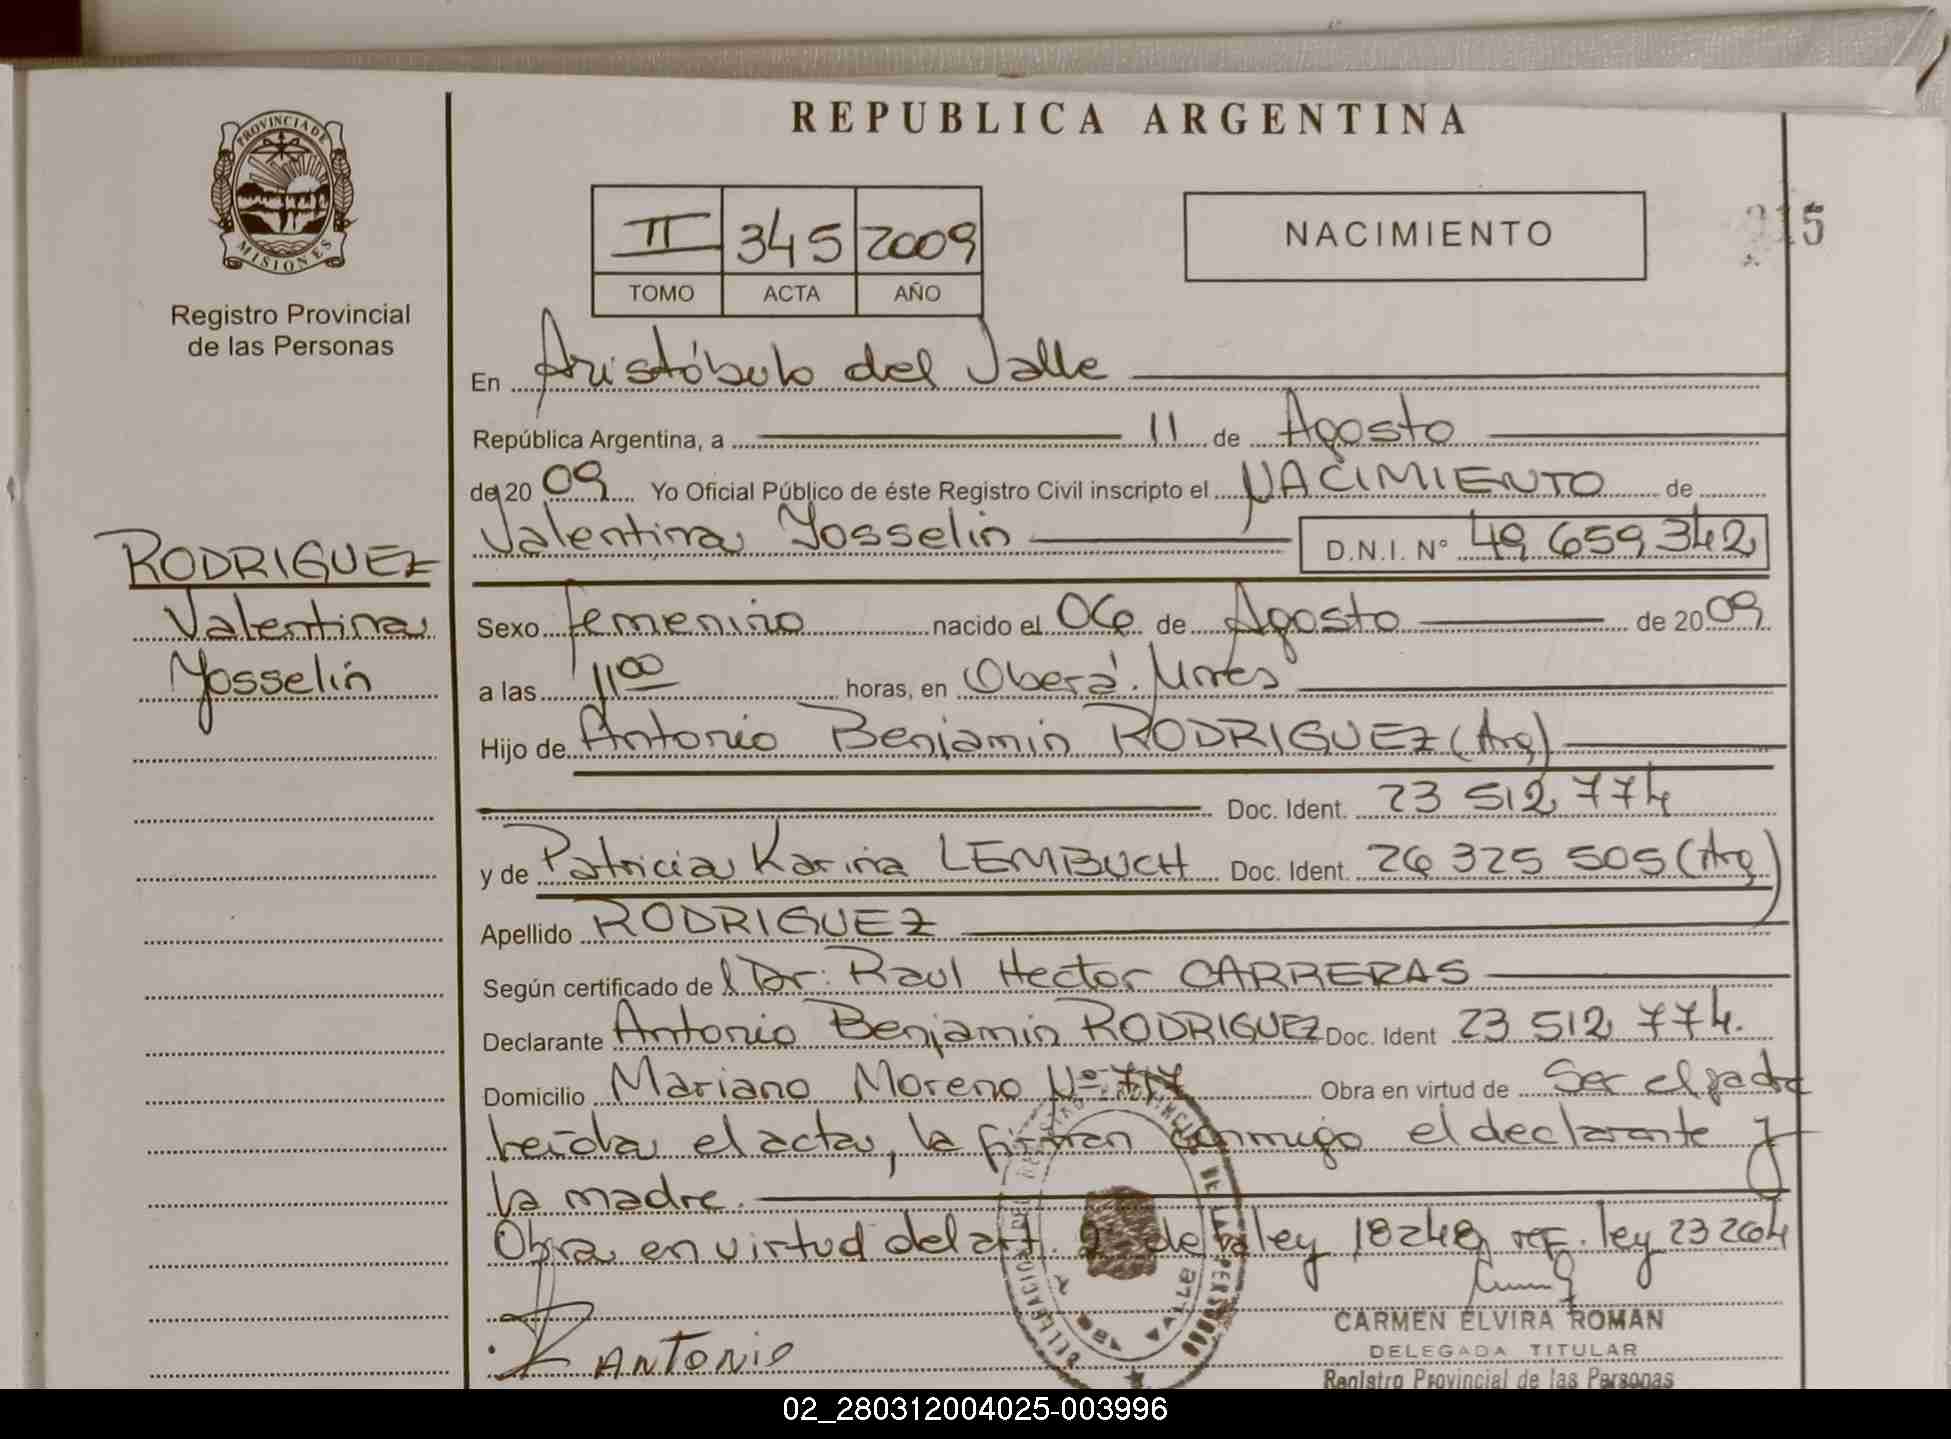 REPUBLICA ARGENTINA
PROVINCIA DE
MISIONES
Registro Provincial
de las Personas
II 345 2009
TOMO ACTA AÑO
NACIMIENTO
En Aristóbulo del Valle
República Argentina, a 11 de Agosto
de 20 09 Yo Oficial Público de éste Registro Civil inscripto el NACIMIENTO de
Valentina Yosselin D.N.I. N° 49 659 342
RODRIGUEZ
Valentina
Yosselin
Sexo femenino nacido el 06 de Agosto de 20 09
a las 11 00 horas, en Oberá. Mnes
Hijo de Antonio Benjamin RODRIGUEZ (Arg)
Doc. Ident. 23 512 774
y de Patricia Karina LEMBUCH Doc. Ident. 26 325 505 (Arg)
Apellido RODRIGUEZ
Según certificado de l Dr. Raul Hector CARRERAS
Declarante Antonio Benjamin RODRIGUEZ Doc. Ident 23 512 774.
Domicilio Mariano Moreno Nº 717 Obra en virtud de Ser el padre
Leída el acta, la firman conmigo el declarante y
la madre.
Obra en virtud del art. de la ley 18248 ref. ley 23264
ANTONIO
CARMEN ELVIRA ROMAN
DELEGADA TITULAR
Registro Provincial de las Personas
02_280312004025-003996